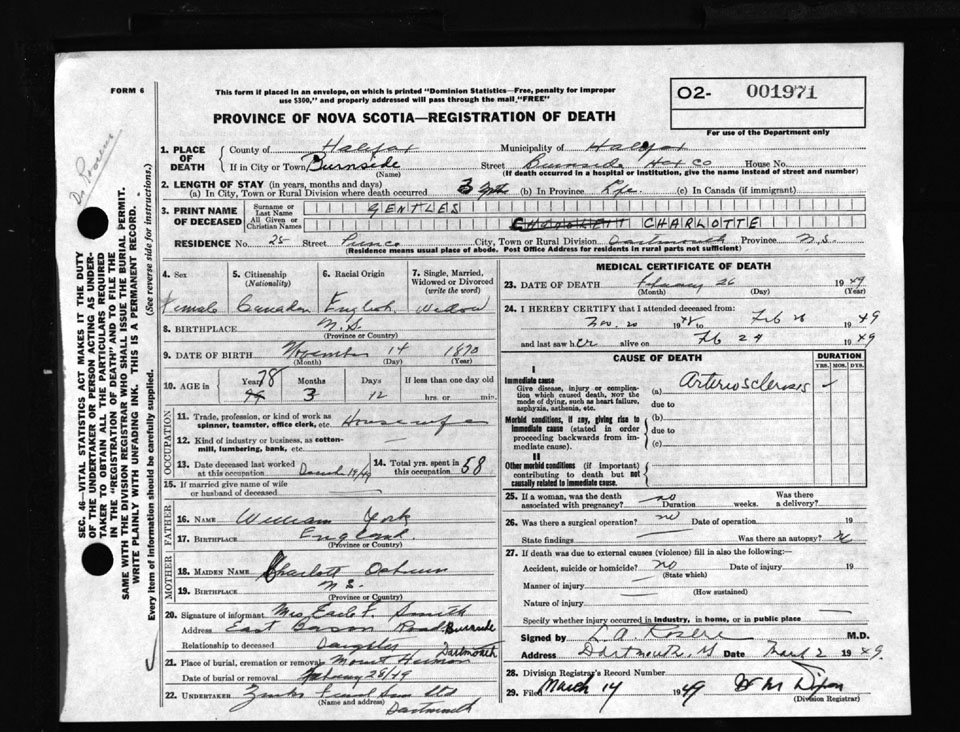 FORM 6
This form if placed in an envelope, on which is printed "Dominion Statistics—Free, penalty for improper
use $300," and properly addressed will pass through the mail, "FREE"
O2- 001971
For use of the Department only
PROVINCE OF NOVA SCOTIA—REGISTRATION OF DEATH
SEC. 46—VITAL STATISTICS ACT MAKES IT THE DUTY
OF THE UNDERTAKER OR PERSON ACTING AS UNDER-
TAKER TO OBTAIN ALL THE PARTICULARS REQUIRED
IN THE "REGISTRATION OF DEATH" AND TO FILE THE
SAME WITH THE DIVISION REGISTRAR WHO SHALL ISSUE THE BURIAL PERMIT.
WRITE PLAINLY WITH UNFADING INK. THIS IS A PERMANENT RECORD.
Every item of information should be carefully supplied. (See reverse side for instructions.)
1. PLACE OF DEATH
County of Halifax Municipality of Halifax
If in City or Town Burnside Street Burnside Hfx Co House No.
(Name) (If death occurred in a hospital or institution, give the name instead of street and number)
2. LENGTH OF STAY (in years, months and days)
(a) In City, Town or Rural Division where death occurred 3 (b) In Province Life (c) In Canada (if immigrant)
3. PRINT NAME OF DECEASED
Surname or Last Name GENTLES
All Given or Christian Names CHARLOTTE
RESIDENCE No. 25 Street City, Town or Rural Division Dartmouth Province N.S.
(Residence means usual place of abode. Post Office Address for residents in rural parts not sufficient)
4. Sex Female
5. Citizenship (Nationality) Canadian
6. Racial Origin English
7. Single, Married, Widowed or Divorced (write the word) Widow
8. BIRTHPLACE N.S.
9. DATE OF BIRTH November 14 1870
(Month) (Day) (Year)
10. AGE in Years 78 Months 3 Days 12 If less than one day old
hrs. or min.
OCCUPATION
11. Trade, profession, or kind of work as
spinner, teamster, office clerk, etc. Housewife
12. Kind of industry or business, as cotton-
mill, lumbering, bank, etc.
13. Date deceased last worked
at this occupation
14. Total yrs. spent in
this occupation 58
15. If married give name of wife
or husband of deceased
FATHER
16. NAME William York
17. BIRTHPLACE England
(Province or Country)
MOTHER
18. MAIDEN NAME Charlott
19. BIRTHPLACE N.S.
(Province or Country)
20. Signature of informant Mrs Earle F. Smith
Address East Road Burnside
Relationship to deceased Daughter Dartmouth
21. Place of burial, cremation or removal Mount Hermon
Date of burial or removal February 28/49
22. UNDERTAKER
(Name and address) Dartmouth
MEDICAL CERTIFICATE OF DEATH
23. DATE OF DEATH February 26 1949
(Month) (Day) (Year)
24. I HEREBY CERTIFY that I attended deceased from:
Nov. 20 1948 to Feb 26 1949
and last saw her alive on Feb 24 1949
CAUSE OF DEATH DURATION
YRS. MOS. DYS.
I
Immediate cause
Give disease, injury or complica-
tion which caused death, NOT the
mode of dying, such as heart failure,
asphyxia, asthenia, etc.
(a) Arteriosclerosis
due to
Morbid conditions, if any, giving rise to
immediate cause (stated in order
proceeding backwards from im-
mediate cause).
(b)
due to
(c)
II
Other morbid conditions (if important)
contributing to death but not
causally related to immediate cause.
25. If a woman, was the death
associated with pregnancy? no Duration weeks. Was there
a delivery?
26. Was there a surgical operation? no Date of operation 19
State findings Was there an autopsy?
27. If death was due to external causes (violence) fill in also the following:—
Accident, suicide or homicide? no Date of injury 19
(State which)
Manner of injury
(How sustained)
Nature of injury
Specify whether injury occurred in industry, in home, or in public place
Signed by M.D.
Address Dartmouth, NS Date March 2 1949
28. Division Registrar's Record Number
29. Filed March 14 1949 H M Dixon
(Division Registrar)